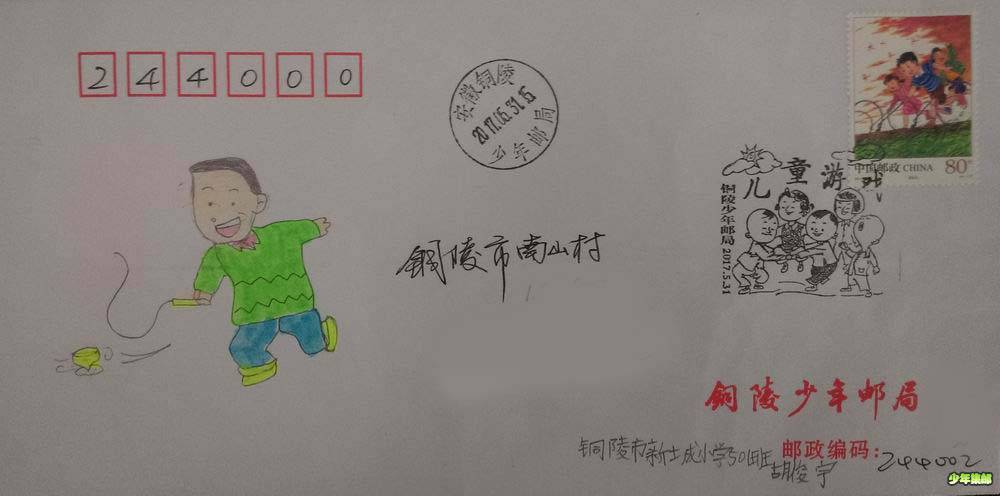 244000
安徽铜陵
2017.05.31.15
少年邮局
中国邮政 CHINA
80分
儿童游戏
铜陵少年邮局 2017.5.31
铜陵市南山村
铜陵少年邮局
邮政编码：244002
铜陵市新士成小学501班
胡俊宇
少年集邮